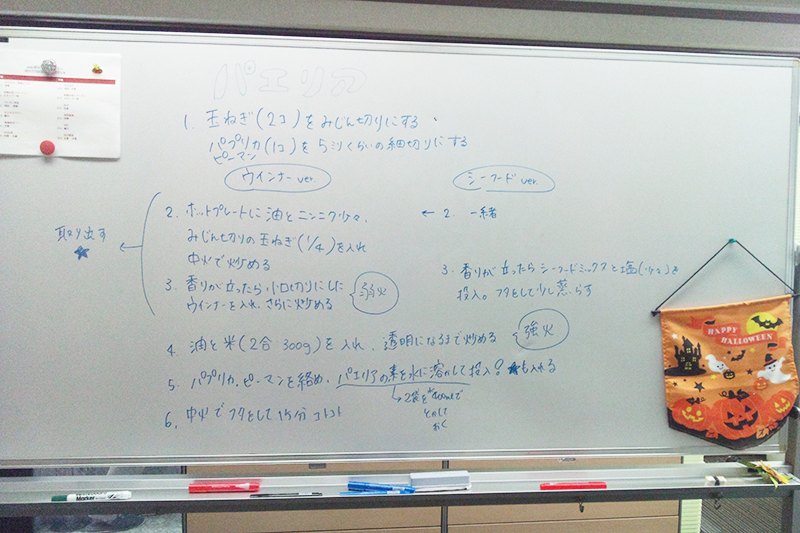 パエリア
1. 玉ねぎ(2コ)をみじん切りにする
パプリカ(1コ)を5ミリくらいの細切りにする
ピーマン
ウインナーver.
シーフードver.
2. ホットプレートに油とニンニク少々、
みじん切りの玉ねぎ(1/4)を入れ
中火で炒める
← 2. 一緒
取り出す
★
3. 香りが立ったら小口切りにした
ウインナーを入れ、さらに炒める
弱火
3. 香りが立ったらシーフードミックスと塩(少々)を
投入。フタをして少し蒸らす
4. 油と米(2合 300g)を入れ、透明になるまで炒める
強火
5. パプリカ、ピーマンを絡め、パエリアの素を水に溶かして投入。★も入れる
→2袋を
とかして
おく
6. 中火でフタをして15分コトコト
HAPPY
HALLOWEEN
Marker